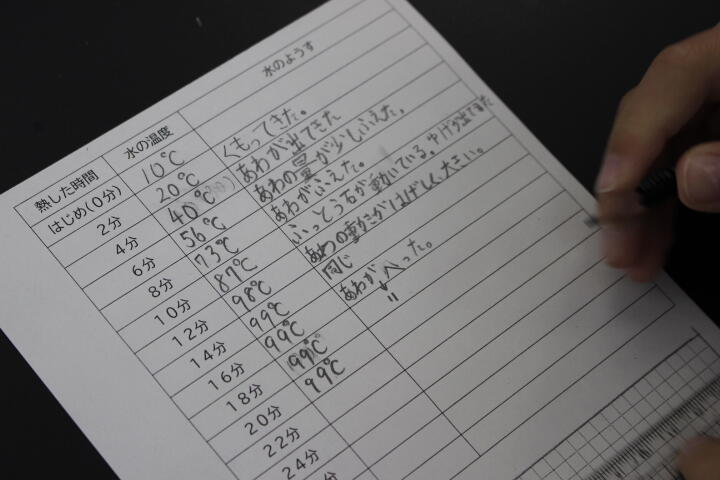 熱した時間 水の温度 水のようす
はじめ(0分) 10℃
2分 20℃ くもってきた。
4分 40℃ あわが出てきた
6分 56℃ あわの量が少しふえた。
8分 73℃ あわがふえた。
10分 87℃ ふっとう石が動いている。ゆげが出てきた
12分 98℃ あわの動きがはげしく、大きい。
14分 99℃ 同じ
16分 99℃ あわがへった。
18分 99℃ 〃
20分 99℃
22分
24分